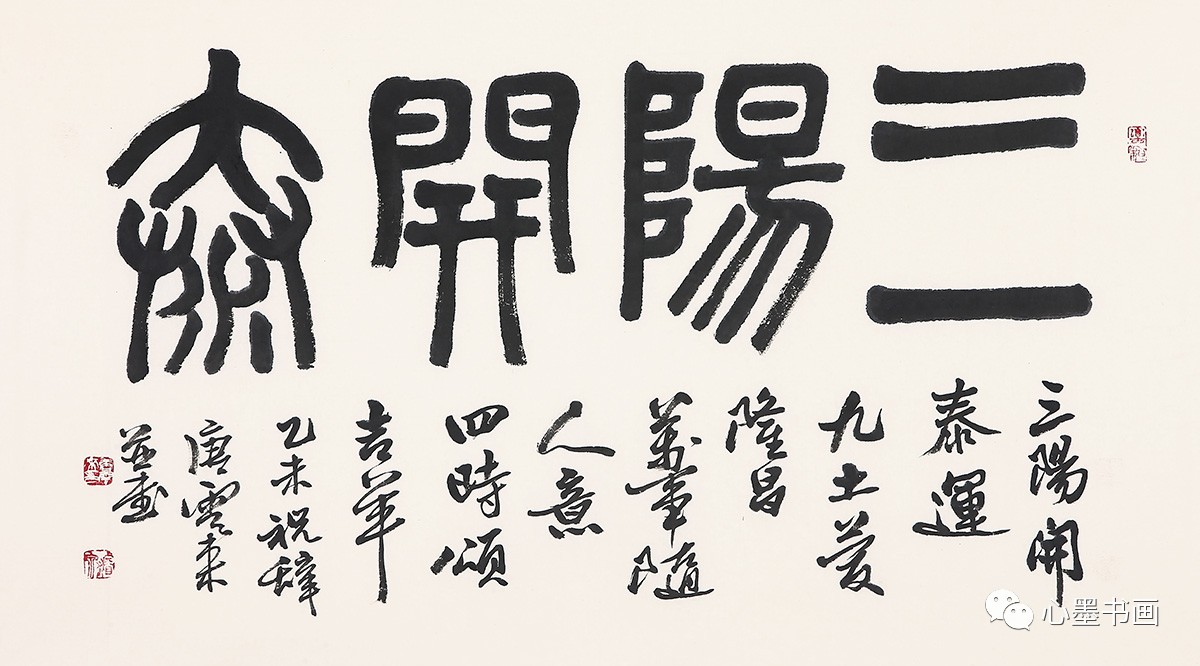 三陽開泰
三陽開
泰運
九土
隆昌
萬事隨
人意
四時頌
吉羊
乙未祝辭
唐雲来
並書
心墨书画